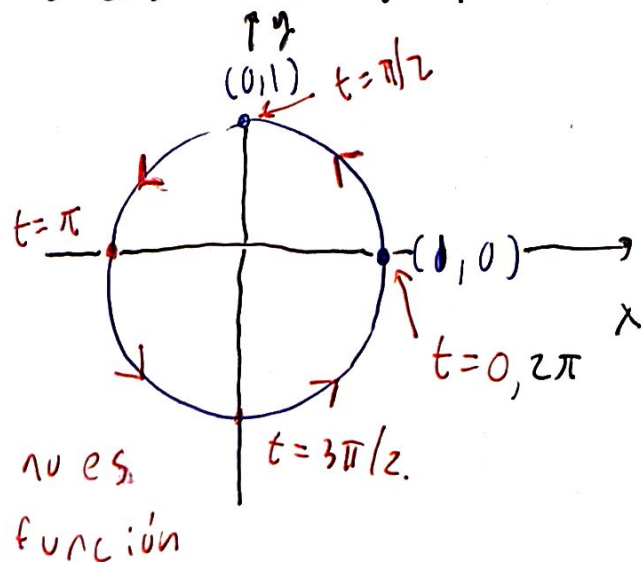 y
(0,1)
t=π/2
t=π
(1,0)
x
t=0,2π
t=3π/2.
no es
función